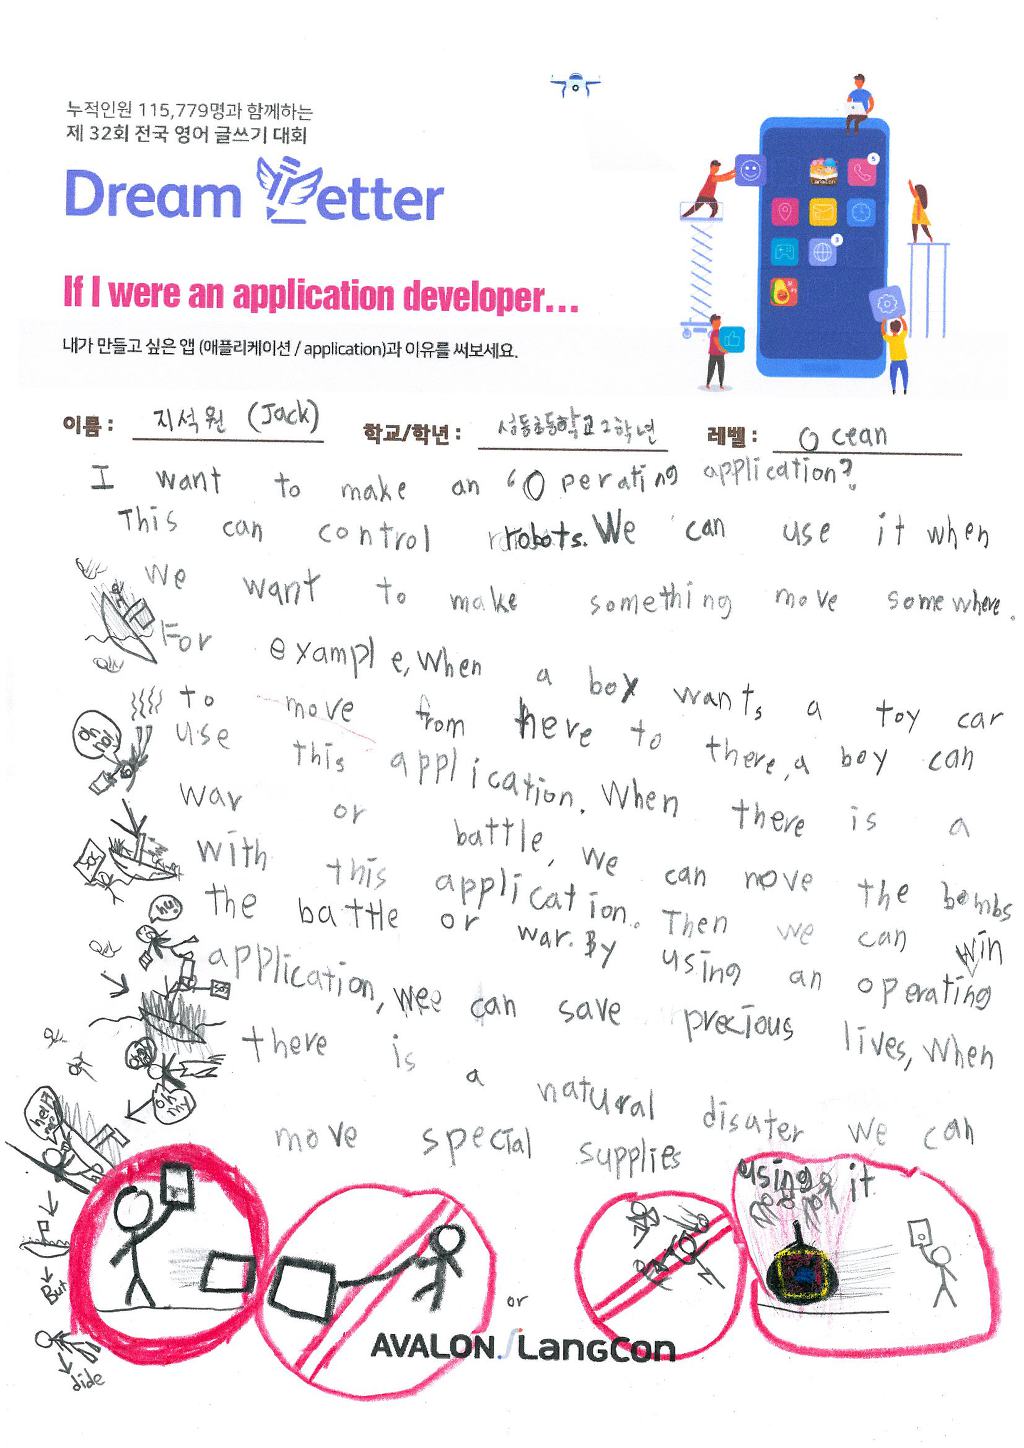 누적인원 115,779명과 함께하는
제 32회 전국 영어 글쓰기 대회
Dream Letter
If I were an application developer...
내가 만들고 싶은 앱 (애플리케이션 / application)과 이유를 써보세요.
이름 : 지석원 (Jack) 학교/학년 : 성동초등학교 2학년 레벨 : Ocean
I want to make an "Operating application?
This can control robots. We can use it when
We want to make something move somewhere.
For example, when a boy wants a toy car
to move from here to there, a boy can
use this application. When there is a
war or battle, we can move the bombs
with this application. Then we can win
the battle or war. By using an operating
application, wee can save precious lives, when
there is a natural disater we can
move special supplies
using it
oh no!
hu!
oh my
help me!
But
dide
or
AVALON LangCon